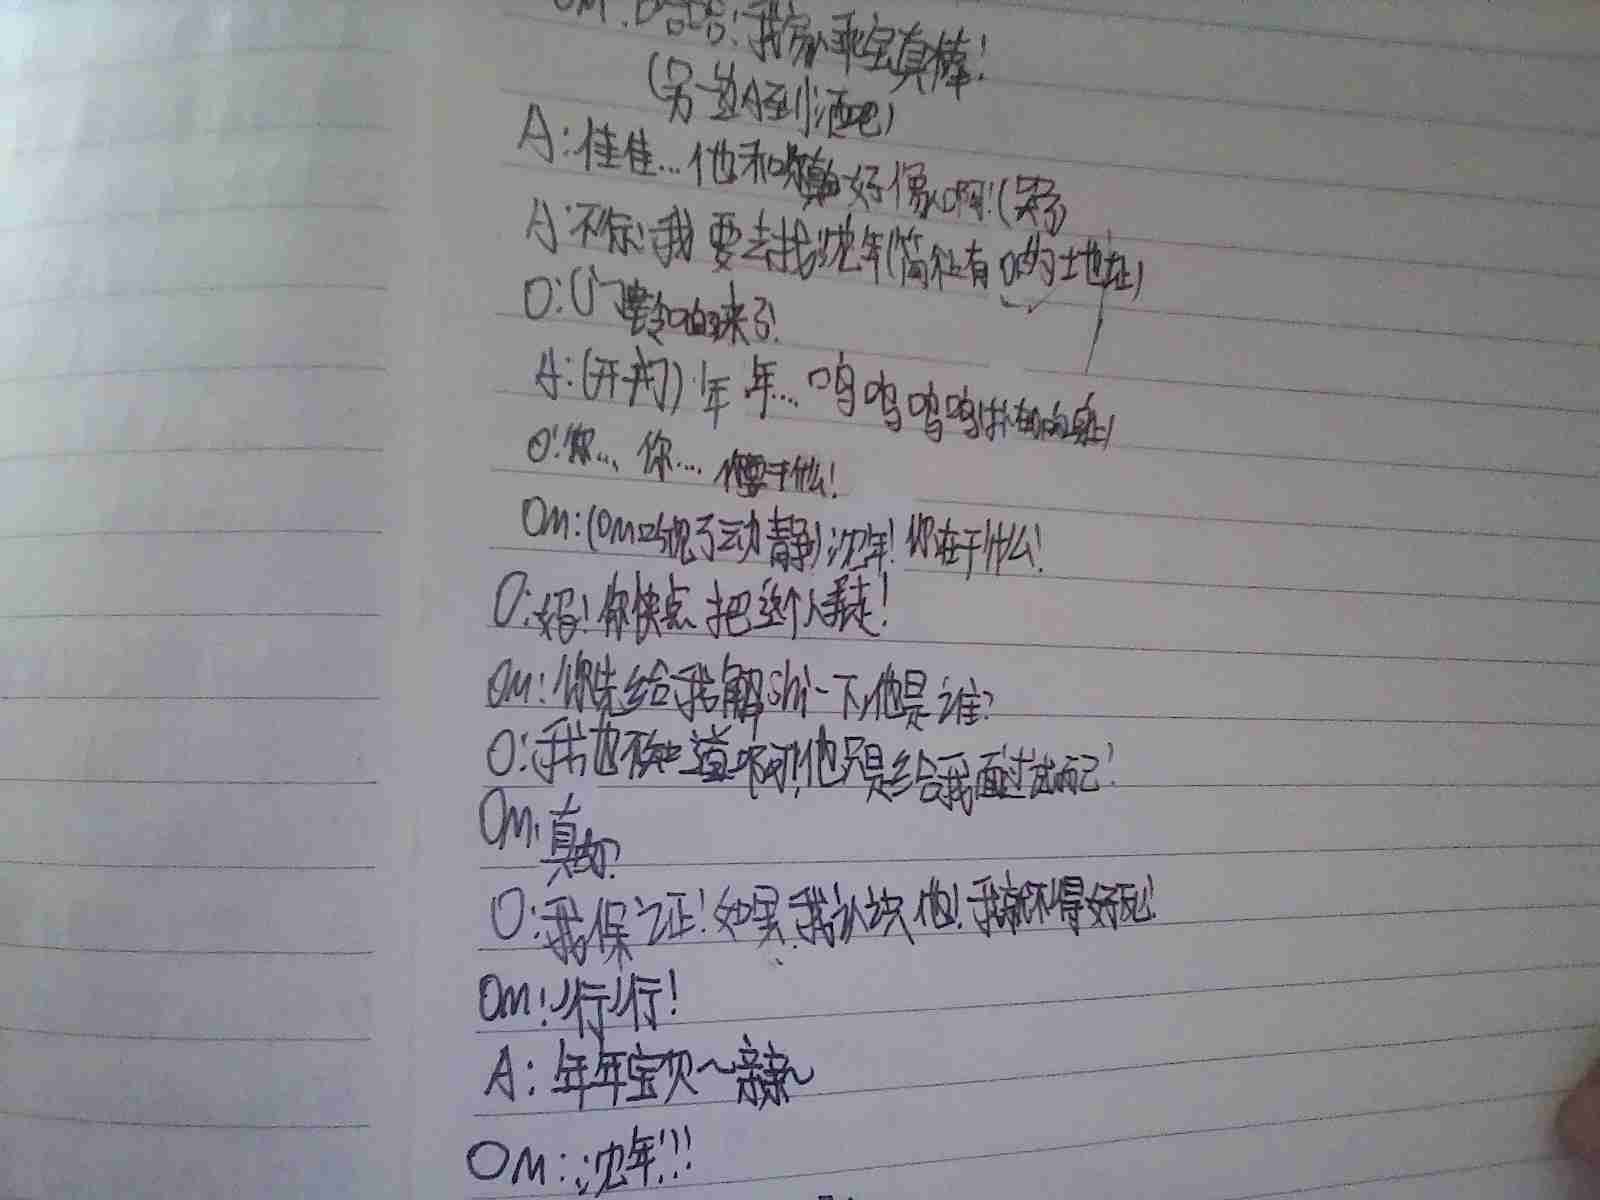 OM:哈哈!我家乖宝真棒!
(另一边A到酒吧)
A:佳佳…他和你真的好像啊!(哭了)
A:不行!我要去找沈年(简社有O的地址)
O:(门铃响了)来了!
A:(开门)年年…呜呜呜呜(扑在O的身上)
O:你…你…你要干什么!
OM:(OM听见了动静)沈年!你在干什么!
O:妈!你快点把这个人弄走!
OM:你先给我解shi一下,他是谁?
O:我也不知道啊!他只是给我面过试而已!
OM:真的?
O:我保证!如果我认识他!我就不得好死!
OM:行行!
A:年年宝贝~亲亲~
OM:沈年!!!